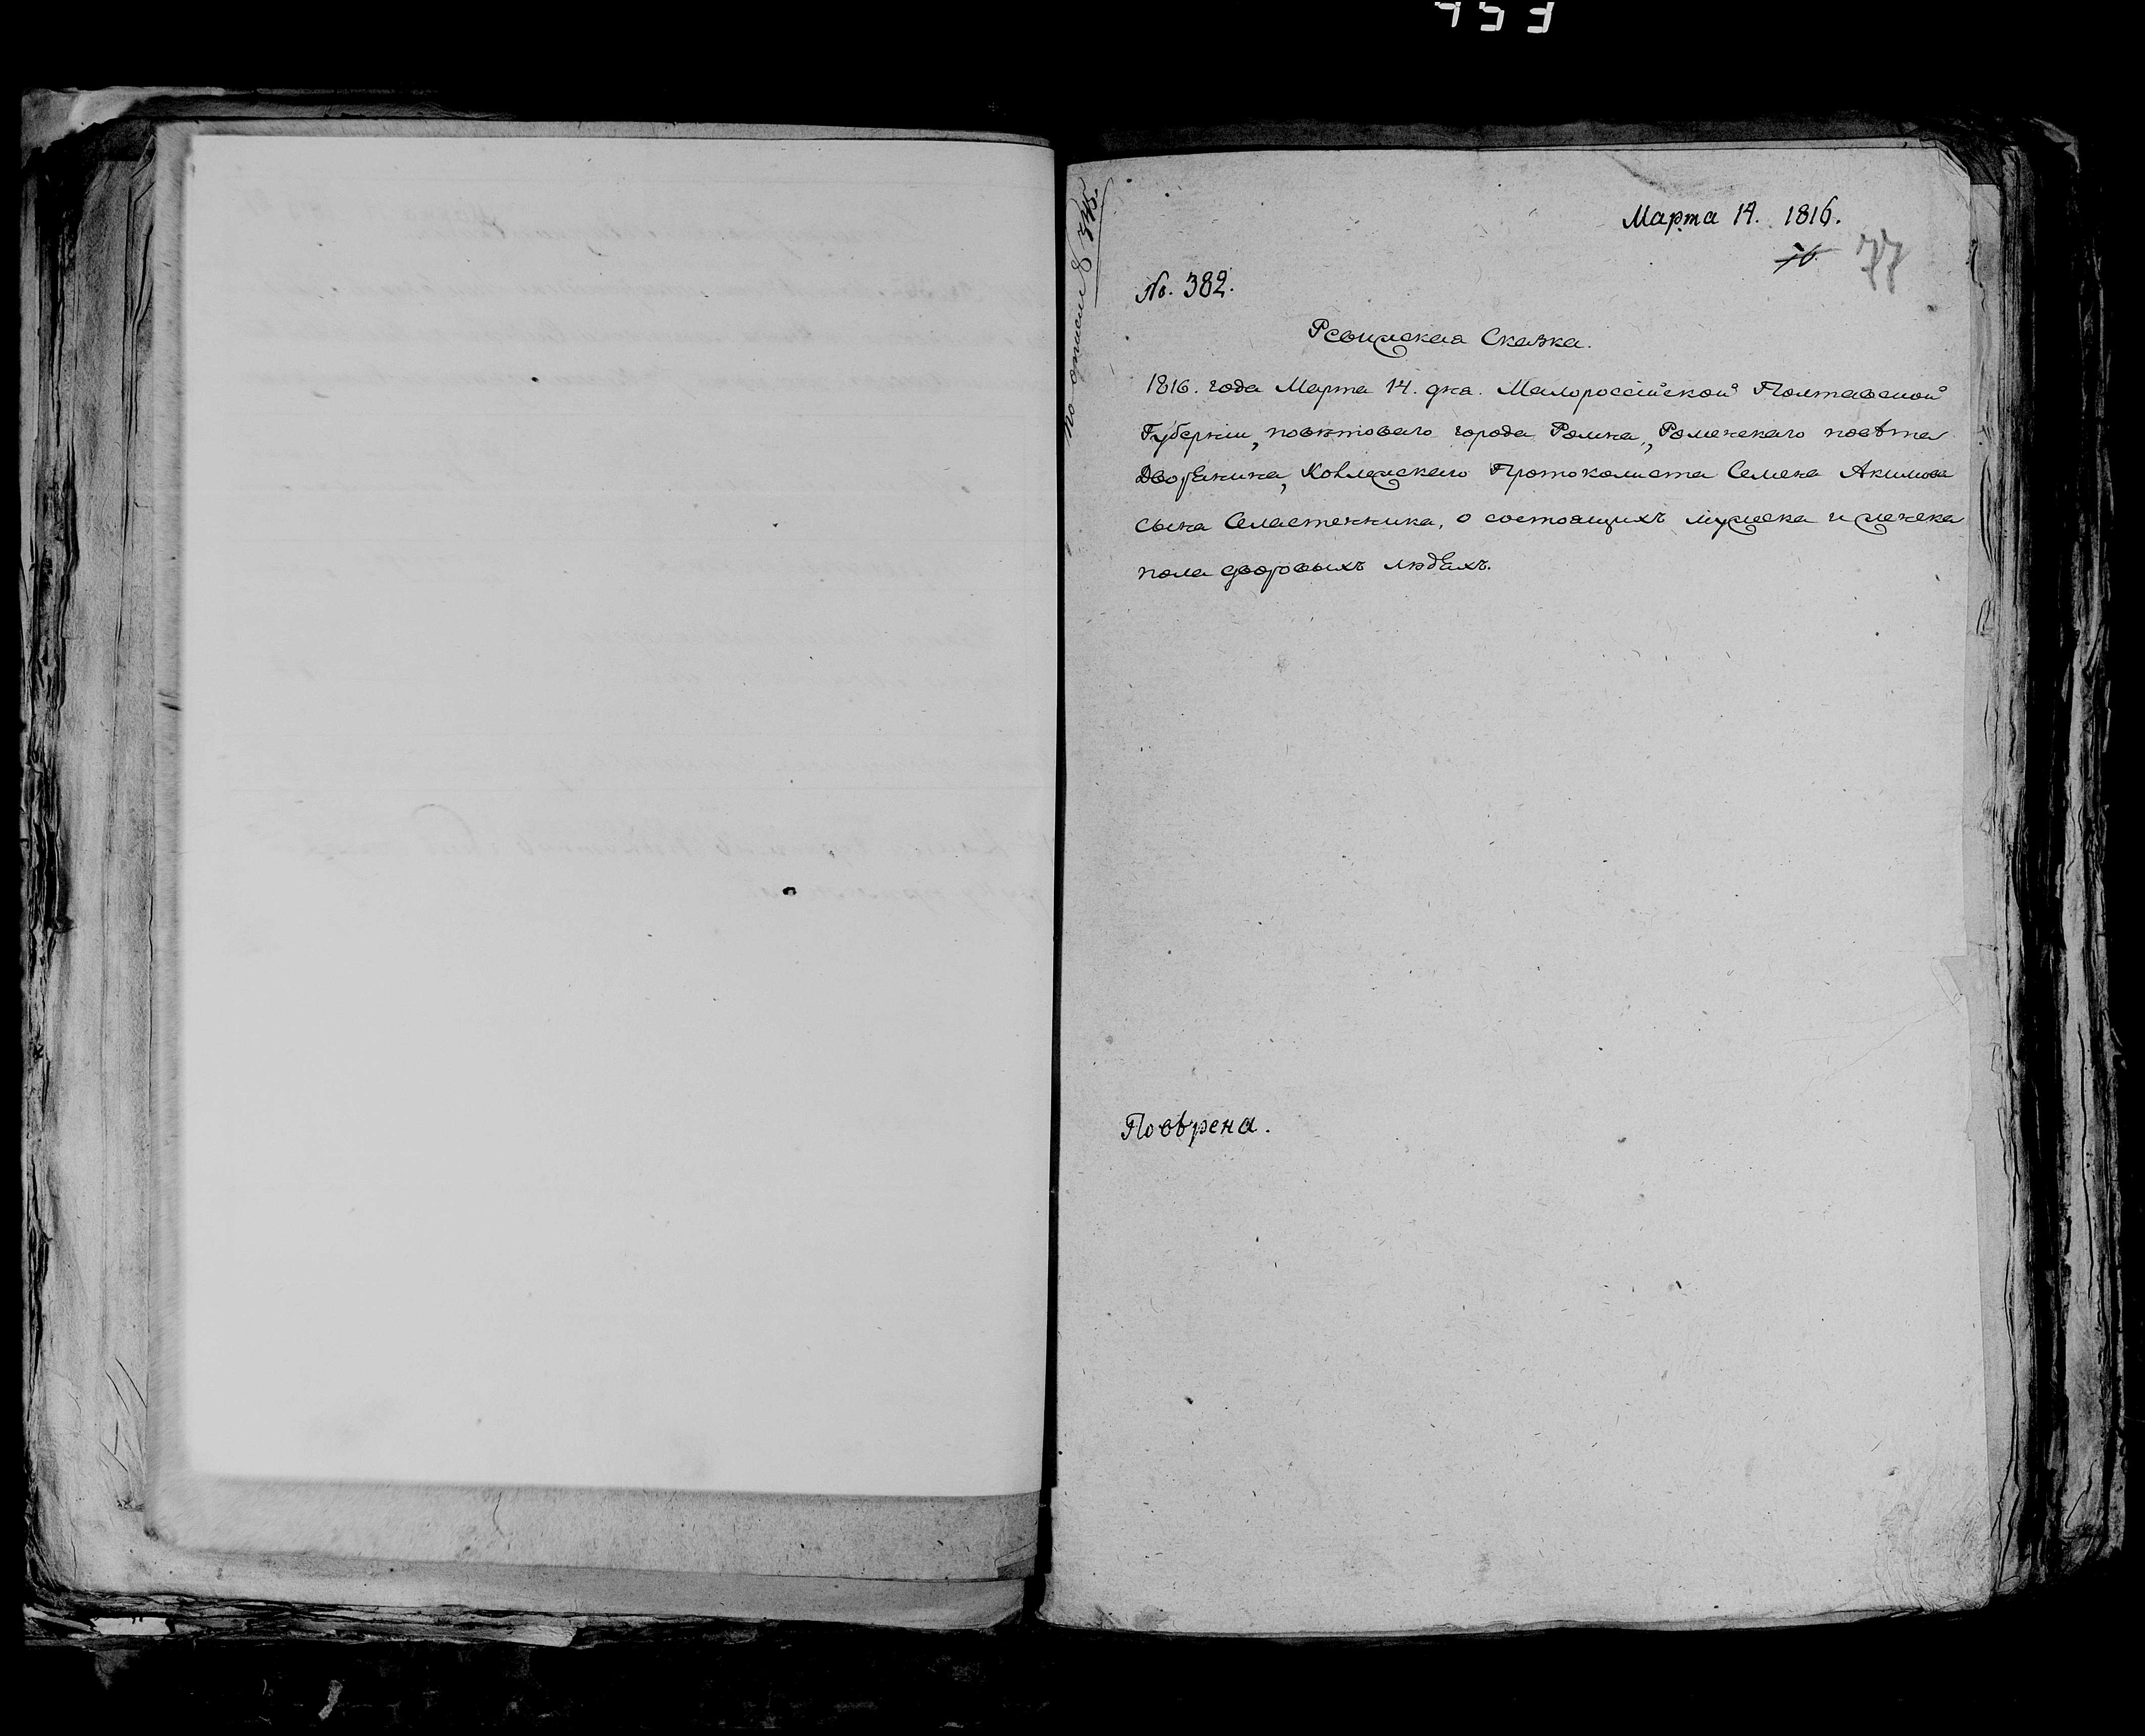 Марта 14. 1816.
77
No. 382.
Ревижская Сказка.
1816. года Марта 14. дня. Малороссійской Полтавской
Губерніи, повѣтоваго города Ромна, Роменскаго повѣта
Дворянина, Колежскаго Протоколиста Семена Акимова
сына Сластенника, о состоящихъ мужеска и женска
пола дворовыхъ людѣхъ.
Повѣрена.